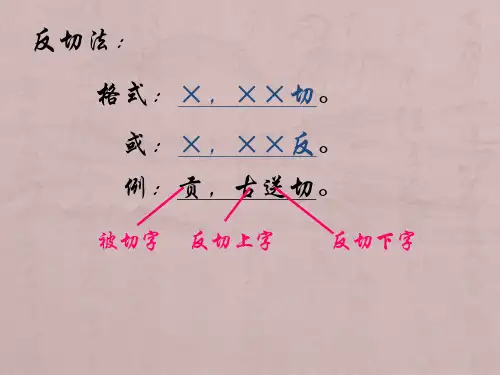 反切法：
格式：×，××切。
或：×，××反。
例：贡，古送切。
被切字 反切上字 反切下字